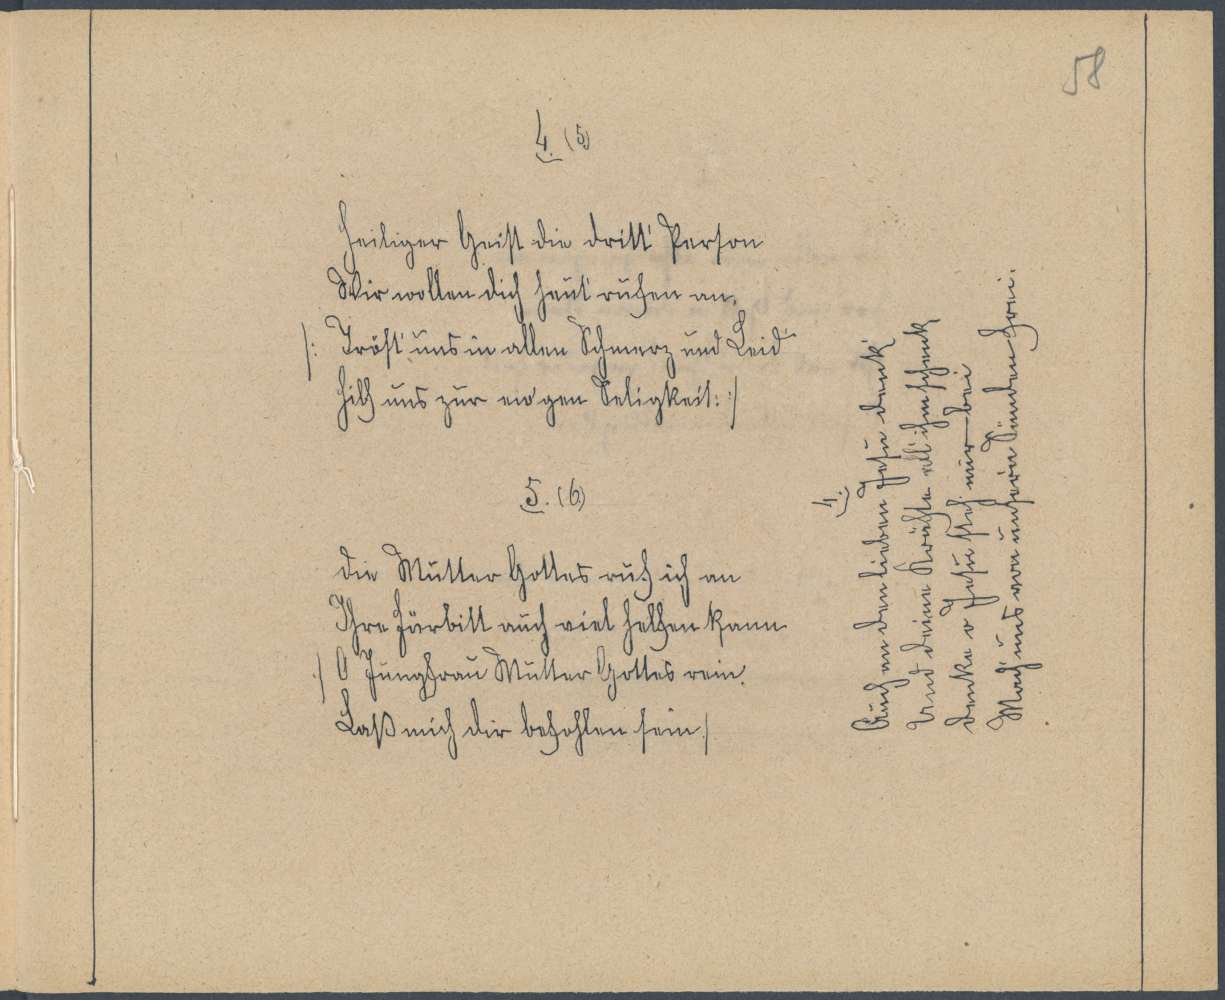 58
4. (5)
Heiliger Geist die dritt' Person
Wir wollen dich heut' rufen an,
/: Tröst' uns in allen Schmerz und Leid'
Hilf uns zur ew'gen Seligkeit: :/
5. (6)
die Mutter Gottes ruf ich an
Ihre Fürbitt auch viel helfen kann
:/ O Jungfrau Mutter Gottes rein.
Laß mich dir befohlen sein /
4.
Auch an den lieben Jesu denk'
Und deine Kräfte all' ihm schenk
denke o Jesu steh mir bei
Mach' uns von unsern Sünden frei.